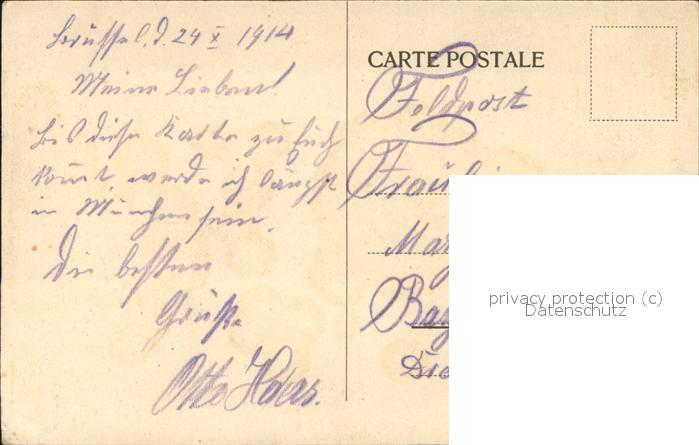 Brüssel, d. 24 X 1914
Meine Lieben!
Bis diese Karte zu Euch
kommt, werde ich längst
in München sein.
Die besten
Grüße
Otto Haas.
CARTE POSTALE
Feldpost
Fräulein
privacy protection (c)
Datenschutz